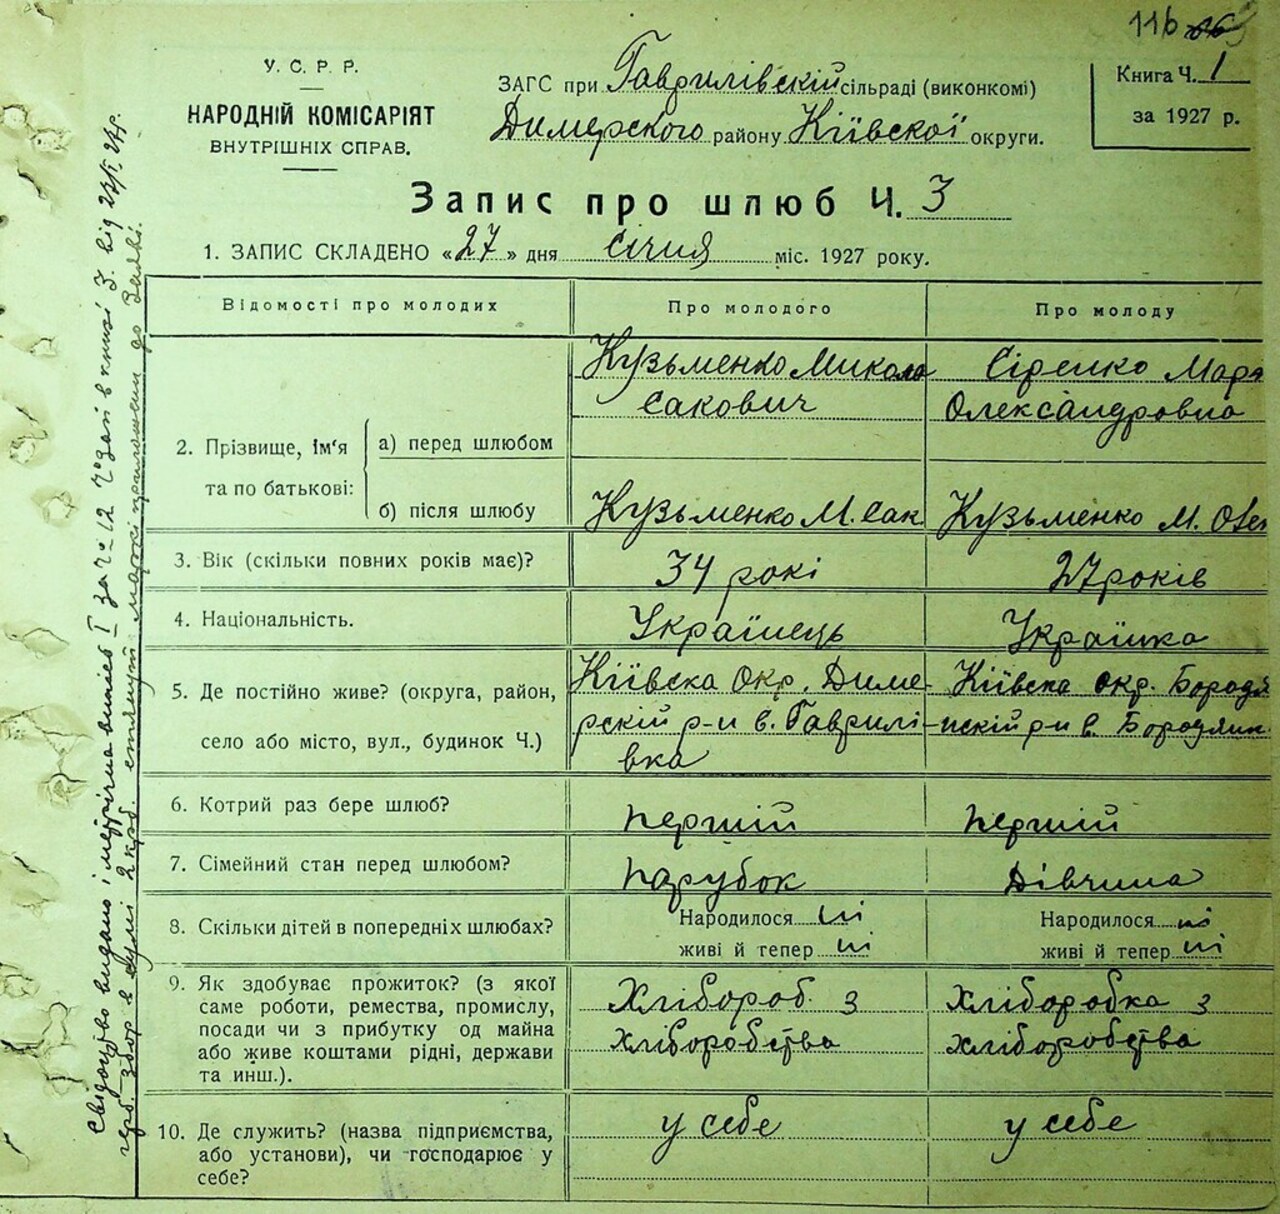 116
У. С. Р. Р.
НАРОДНІЙ КОМІСАРІЯТ
ВНУТРІШНІХ СПРАВ.
ЗАГС при Гаврилівскій сільраді (виконкомі)
Димерского району Кіївскої округи.
Книга Ч. 1
за 1927 р.
Запис про шлюб Ч. 3
1. ЗАПИС СКЛАДЕНО «27» дня Січня міс. 1927 року.
Відомості про молодих
Про молодого
Про молоду
2. Прізвище, ім'я та по батькові:
а) перед шлюбом
Кузьменко Микола
Сакович
Сіренко Мара
Олександровна
б) після шлюбу
Кузьменко М. Сак
Кузьменко М. Олек
3. Вік (скільки повних років має)?
34 рокі
27 років
4. Національність.
Українець
Українка
5. Де постійно живе? (округа, район,
село або місто, вул., будинок Ч.)
Кіївска Окр. Диме-
рскій р-н в. Гаврилі-
вка
Кіївска окр. Бородя
нскій р-н в. Бородянк
6. Котрий раз бере шлюб?
першій
першій
7. Сімейний стан перед шлюбом?
парубок
Дівчина
8. Скільки дітей в попередніх шлюбах?
Народилося ні
живі й тепер ні
Народилося ні
живі й тепер ні
9. Як здобуває прожиток? (з якої
саме роботи, ремества, промислу,
посади чи з прибутку од майна
або живе коштами рідні, держави
та инш.).
Хлібороб з
хліборобства
Хліборобка з
хліборобства
10. Де служить? (назва підприємства,
або установи), чи господарює у
себе?
у себе
у себе
Свідоцтво видано і метрична витяг І за ч. 12
герб. збор в сумі 2 крб. маркі до Заяві.